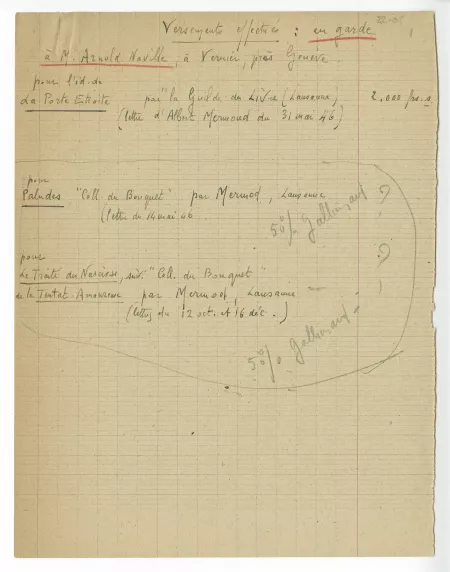 Versements effectués : en garde
1
à M. Arnold Naville, à Vernier, près Genève.
pour l'éd. de
La Porte Etroite par "la Guilde du Livre (Lausanne), 2.000 frs. s
(lettre d'Albert Mermoud du 31 mai 46)
pour
Paludes, "Coll. du Bouquet" par Mermod, Lausanne ?
(lettre du 14 mai 46
50% Gallimard
pour
Le Traité du Narcisse, suiv. "Coll. du Bouquet" ?
de la Tentat. Amoureuse par Mermod, Lausanne
(lettres du 12 oct. et 16 déc.)
50% Gallimard